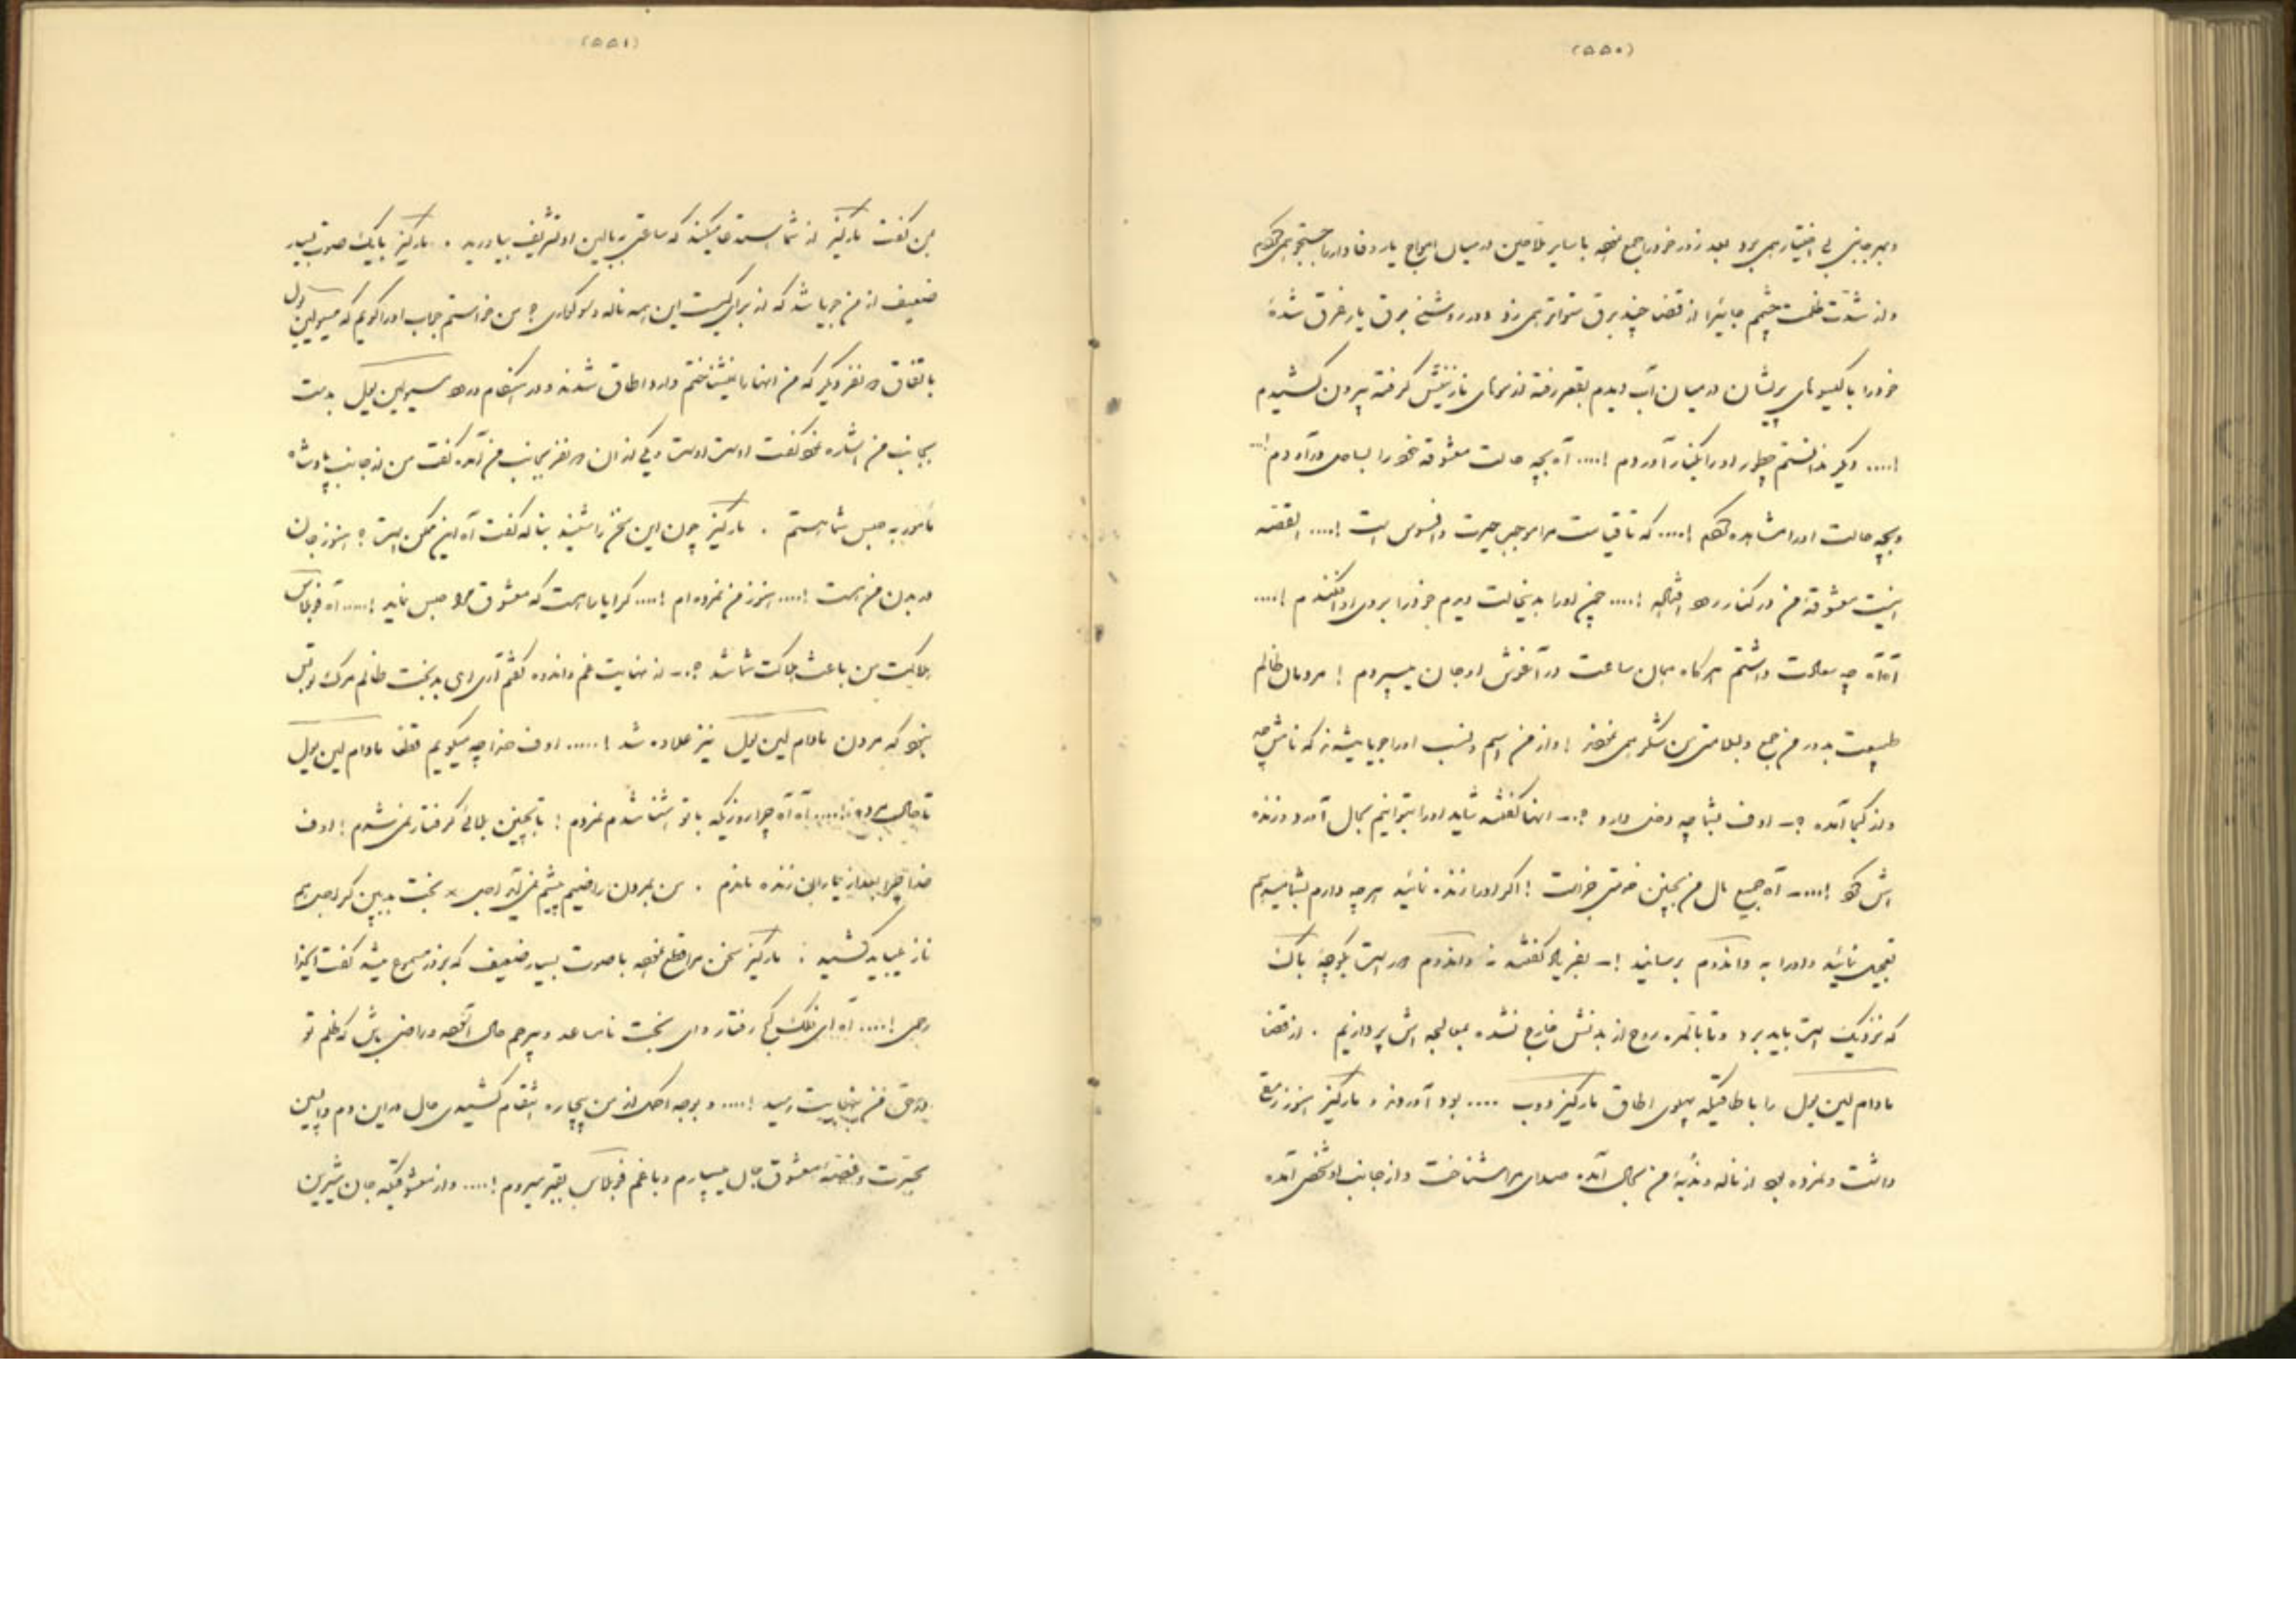 (۵۵۰)
و بهر جانبی بی اختیار همی برد بعد زور خود را جمع نموده با سایر ملاحین در میان امواج یار وفادار را جستجو همی کردم
و از شدت ظلمت چشم جائی را از قضا چند برق متواتر همی زد و در روشنی برق یار غرق شدهٔ
خود را با کیسوهای پریشان در میان آب دیدم بقعر رفته از موهای نازنینش گرفته بیرون کشیدم
!.... دیگر ندانستم چطور او را بکنار آوردم !.... آه بچه حالت معشوقهٔ خود را بساحل درآوردم !...
و بچه حالت او را مشاهده کردم !.... که تا قیامت مرا موجب حیرت و افسوس است !.... القصه
اینست معشوقهٔ من در کنار رود افتاده !.... چون او را بدینحالت دیدم خود را بروی او افکندم !....
آه آه چه سعادت داشتم هرگاه همان ساعت در آغوش او جان میسپردم ! مردمان ظالم
طبیعت بدور من جمع و بسلامتی من شکر همی نمودند ! و از من اسم و نسب او را جویا میشدند که نامش چه
و از کجا آمده ؟ – اوف بشما چه دخلی دارد ؟ – آنها گفتند شاید او را بتوانیم بحال آورد و زنده
اش کرد !.... – آه جمیع مال من بچنین خدمتی جزاست ! اگر او را زنده نمائید هرچه دارم بشما میدهم
تعجیل نمائید و او را به واندوم برسانید ! – بفریاد گفتند نه واندوم دور است بکوچهٔ باک
که نزدیک است باید برد و تا بالمره روح از بدنش خارج نشده بمعالجه اش پردازیم . از قضا
مادام لین ویل را باطاقیکه پهلوی اطاق مارکیز دوب .... بود آوردند و مارکیز هنوز رمقی
داشت و نمرده بود از ناله و ندبهٔ من بحال آمده صدای مرا شناخت و از جانب او شخصی آمده
(۵۵۱)
بمن گفت مارکیز از شما استدعا میکند که ساعتی ببالین او تشریف بیاورید . مارکیز با یک صوت بسیار
ضعیف از من جویا شد که از برای کیست این همه ناله و سوگواری ؟ من خواستم جواب او را گویم که مسیو لین ویل
باتفاق دو نفر دیگر که من آنها را نمیشناختم وارد اطاق شدند و در هنگام ورود مسیو لین ویل بدست
بجانب من اشاره نمود گفت اوست اوست و یکی از آن دو نفر بجانب من آمده گفت من از جانب پادشاه
مأمور به حبس شما هستم . مارکیز چون این سخن را شنید بناله گفت آه این ممکن است ؟ هنوز جان
در بدن من است !.... هنوز من نمرده ام !.... که را یارا است که معشوق مرا حبس نماید !.... آه فوبلاس
هلاکت من باعث هلاکت شما شد ؟ – از نهایت غم و اندوه گفتم آری ای بدبخت ظالم مرگ تو بس
نبود که مردن مادام لین ویل نیز علاوه شد !..... اوف خدا چه میگویم فقط مادام لین ویل
تا حال مرده !.... آه آه چرا روزیکه با تو آشنا شدم نمردم ! تا بچنین بلائی گرفتار نمیشدم ! اوف
خدا چرا بعد از بیماری زنده ماندم . من بمردن راضیم چشم نمی آید اجل * بخت بد بین کز اجل هم
ناز میباید کشید : مارکیز سخن مرا قطع نموده با صوت بسیار ضعیف که بزور مسموع میشد گفت ایخدا
رحمی !.... آه ای فلک کج رفتار و ای بخت ناساعد و بیرحم حال آسوده و راضی باش که ظلم تو
در حق من بنهایت رسید !.... و بوجه احسن از من بیچاره انتقام کشیدی حال در این دم واپسین
بحیرت و غصهٔ معشوق جان میسپارم و با غم فوبلاس بقبر میروم !.... و از معشوقیکه جان شیرین